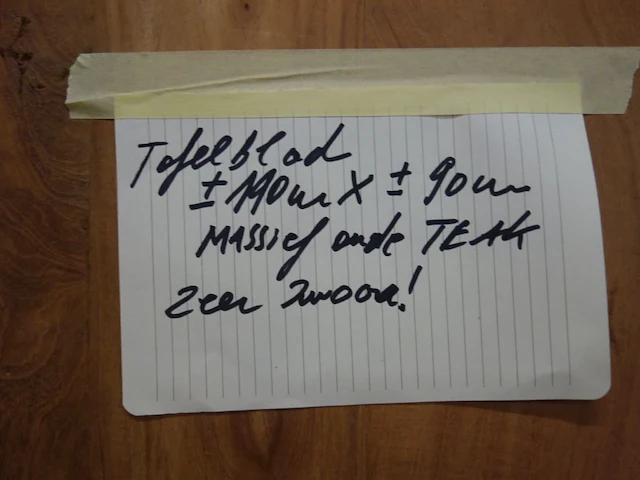 Tafelblad
± 190cm X ± 90cm
MASSIEf oude TEAK
Zeer Zwaar!